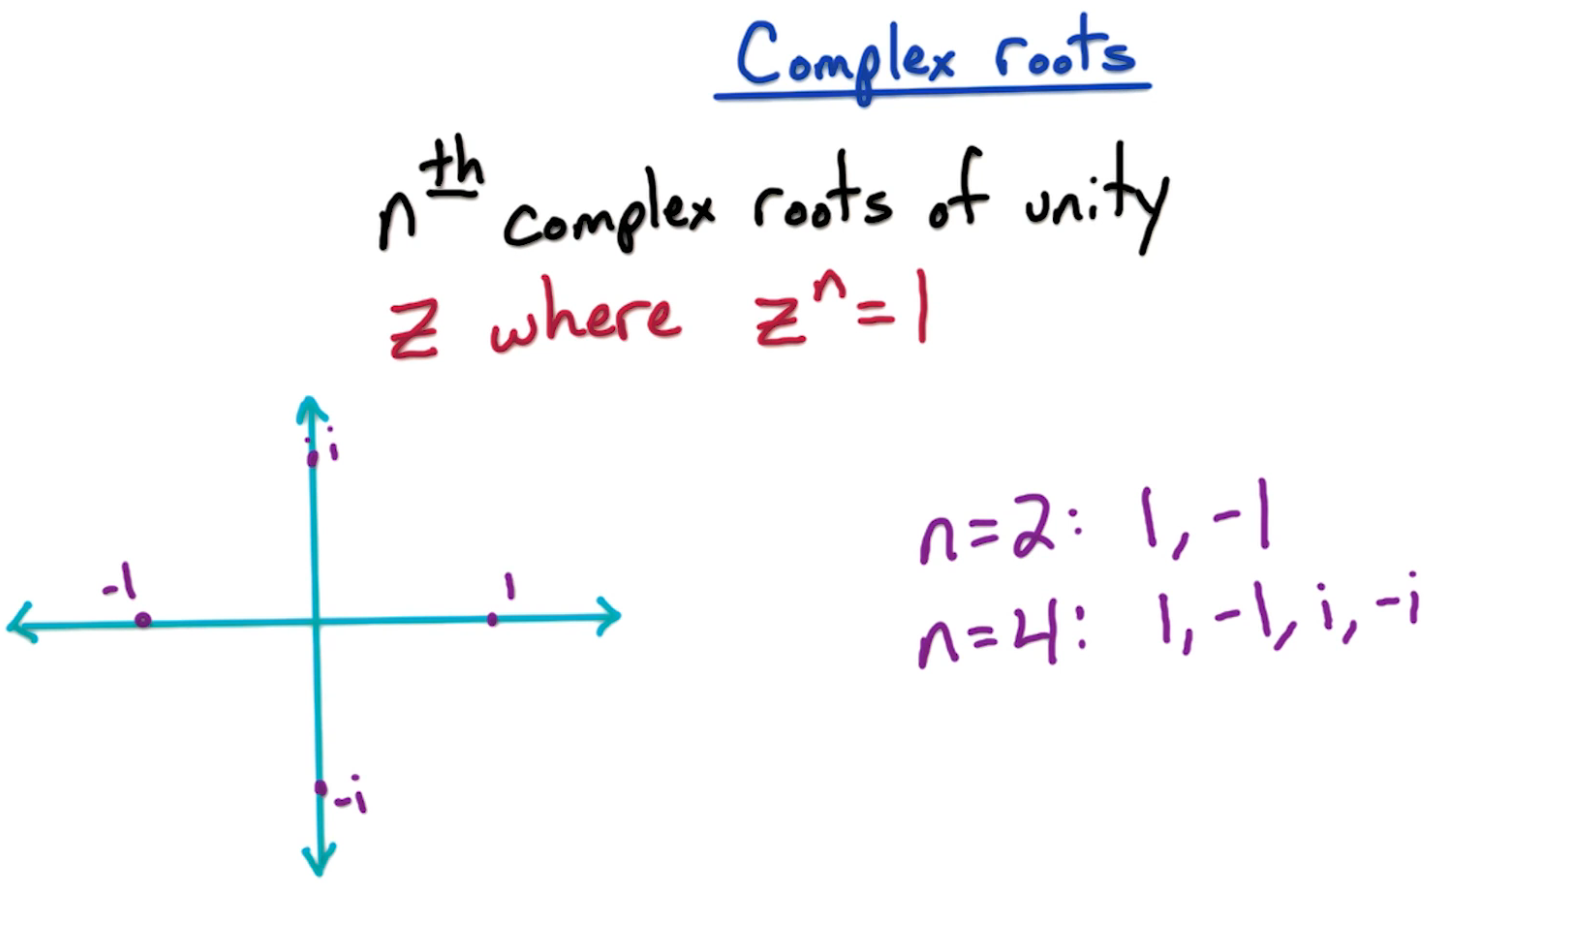 Complex roots
nth complex roots of unity
z where z^n = 1
i
-1
1
-i
n=2: 1, -1
n=4: 1, -1, i, -i